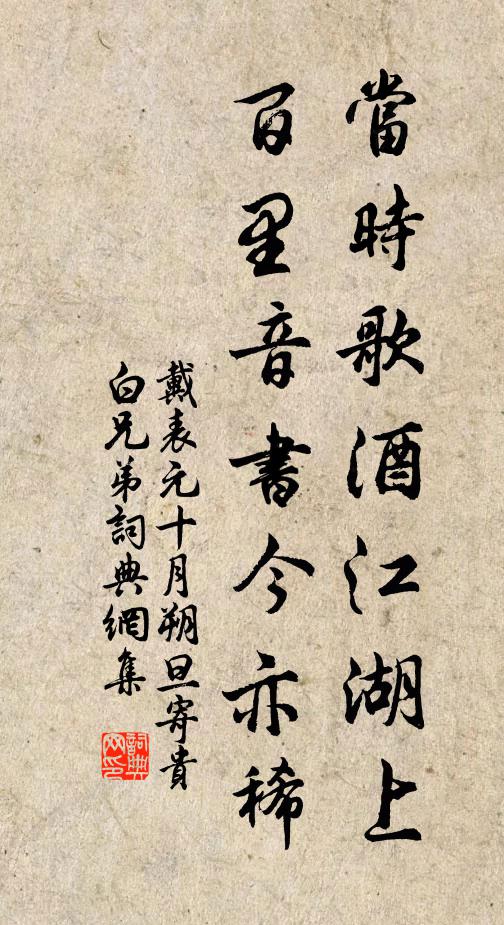 當時歌酒江湖上
百里音書今亦稀
戴表元十月朔旦寄貴
白兄弟詞典網集
詞典
网印